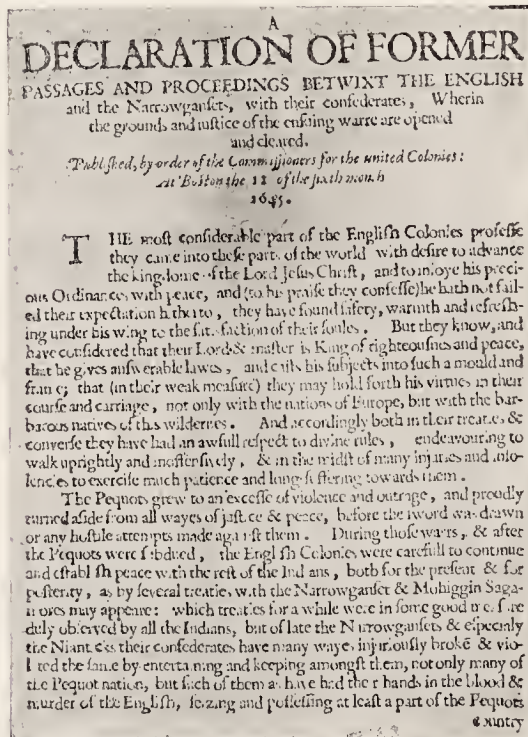 A
DECLARATION OF FORMER
PASSAGES AND PROCEEDINGS BETWIXT THE ENGLISH
and the Narrowgansets, with their confederates, Wherin
the grounds and iustice of the ensuing warre are opened
and cleared.
Published, by order of the Commissioners for the united Colonies:
At Boston the 11 of the sixth month
1645.
THE most considerable part of the English Colonies professe
they came into these parts of the world with desire to advance
the kingdome of the Lord Jesus Christ, and to injoye his preci-
ous Ordinances with peace, and (to his praise they confesse) he hath not fail-
ed their expectation hitherto, they have found safety, warmth and refresh-
ing under his wing to the satisfaction of their soules. But they know, and
have considered that their Lord & master is King of righteousnes and peace,
that he gives answerable lawes, and casts his subjects into such a mould and
frame; that (in their weak measure) they may hold forth his virtues in their
course and carriage, not only with the nations of Europe, but with the bar-
barous natives of this wildernes. And accordingly both in their treaties &
converse they have had an awfull respect to divine rules, endeavouring to
walk uprightly and inoffensively, & in the midst of many injuries and inso-
lencies to exercise much patience and long-suffering towards them.
The Pequots grew to an excesse of violence and outrage, and proudly
turned aside from all wayes of justice & peace, before the sword was drawn
or any hostile attempts made against them. During those warrs, & after
the Pequots were subdued, the English Colonies were carefull to continue
and establish peace with the rest of the Indians, both for the present & for
posterity, as by severall treaties with the Narrowganset & Mohiggin Saga-
mores may appeare: which treaties for a while were in some good measure
duly observed by all the Indians, but of late the Narrowgansets & especialy
the Nianticks their confederates have many wayes injuriously brokē & vio-
lated the same by entertaining and keeping amongst them, not only many of
the Pequot nation, but such of them as have had their hands in the blood &
murder of the English, seizing and possessing at least a part of the Pequots
country